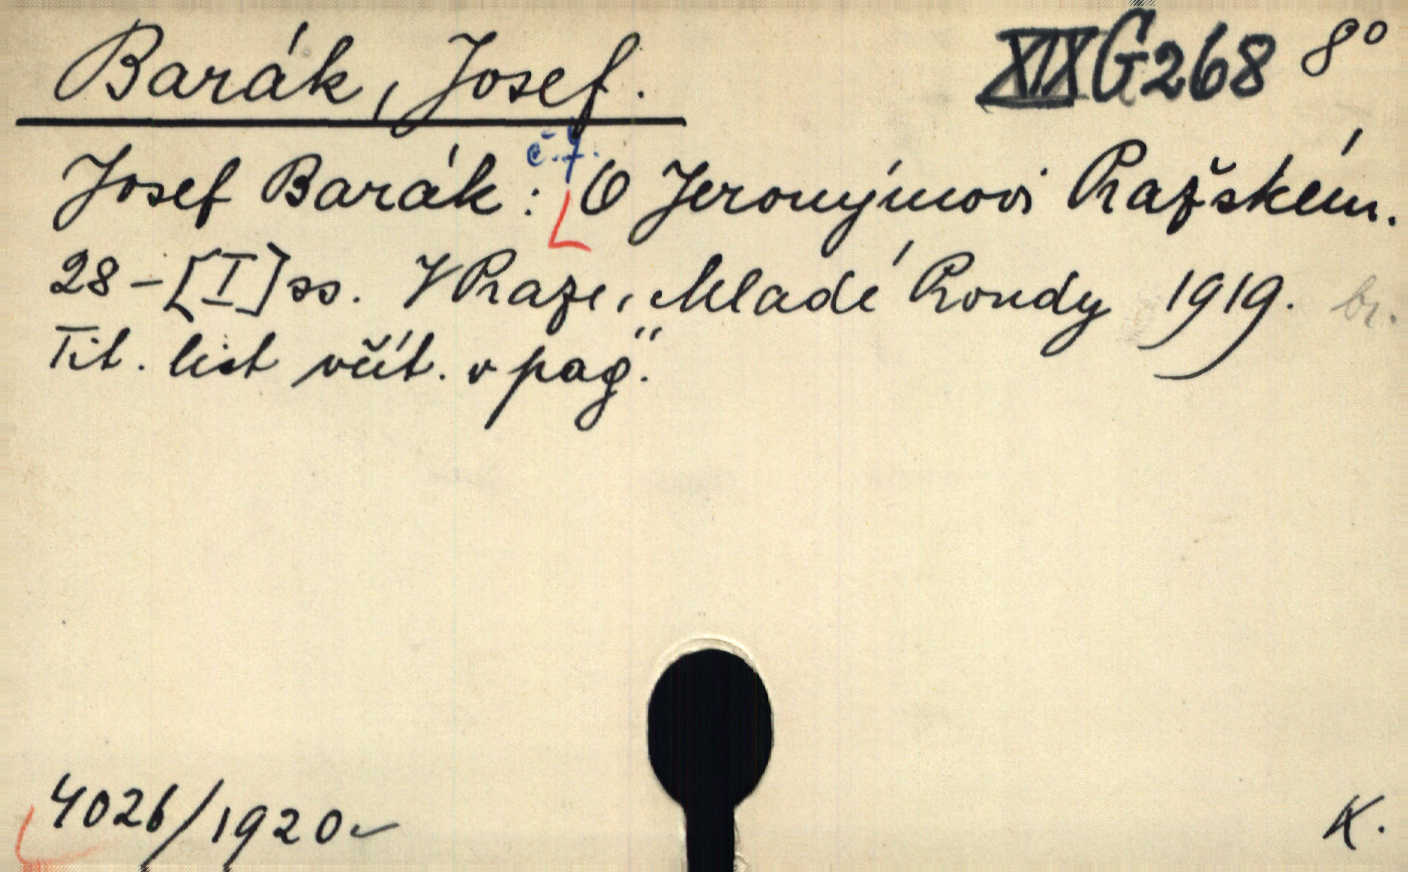 Barák, Josef. XIX G 268 8°
č. f.
Josef Barák: O Jeronýmovi Pražském.
28-[I] ss. V Praze, Mladé Proudy 1919. br.
Tit. list včít. v pag."
4026/1920
K.